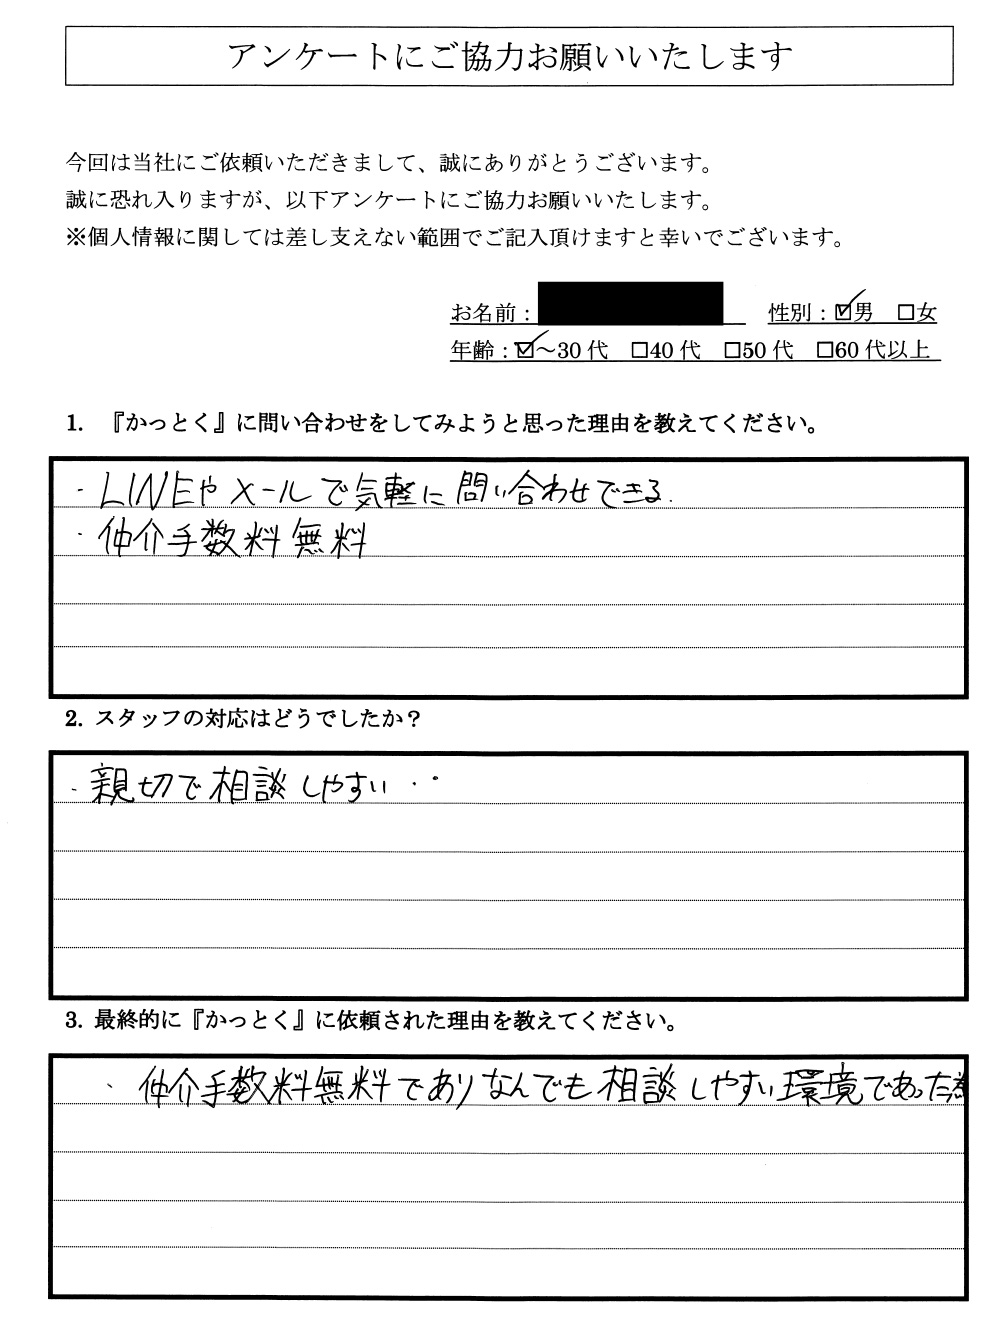 アンケートにご協力お願いいたします
今回は当社にご依頼いただきまして、誠にありがとうございます。
誠に恐れ入りますが、以下アンケートにご協力お願いいたします。
※個人情報に関しては差し支えない範囲でご記入頂けますと幸いでございます。
お名前： 性別：☑男 □女
年齢：☑～30代 □40代 □50代 □60代以上
1. 『かっとく』に問い合わせをしてみようと思った理由を教えてください。
・LINEやメールで気軽に問い合わせできる.
・仲介手数料無料
2. スタッフの対応はどうでしたか？
・親切で相談しやすい・・
3. 最終的に『かっとく』に依頼された理由を教えてください。
・仲介手数料無料でありなんでも相談しやすい環境であった為